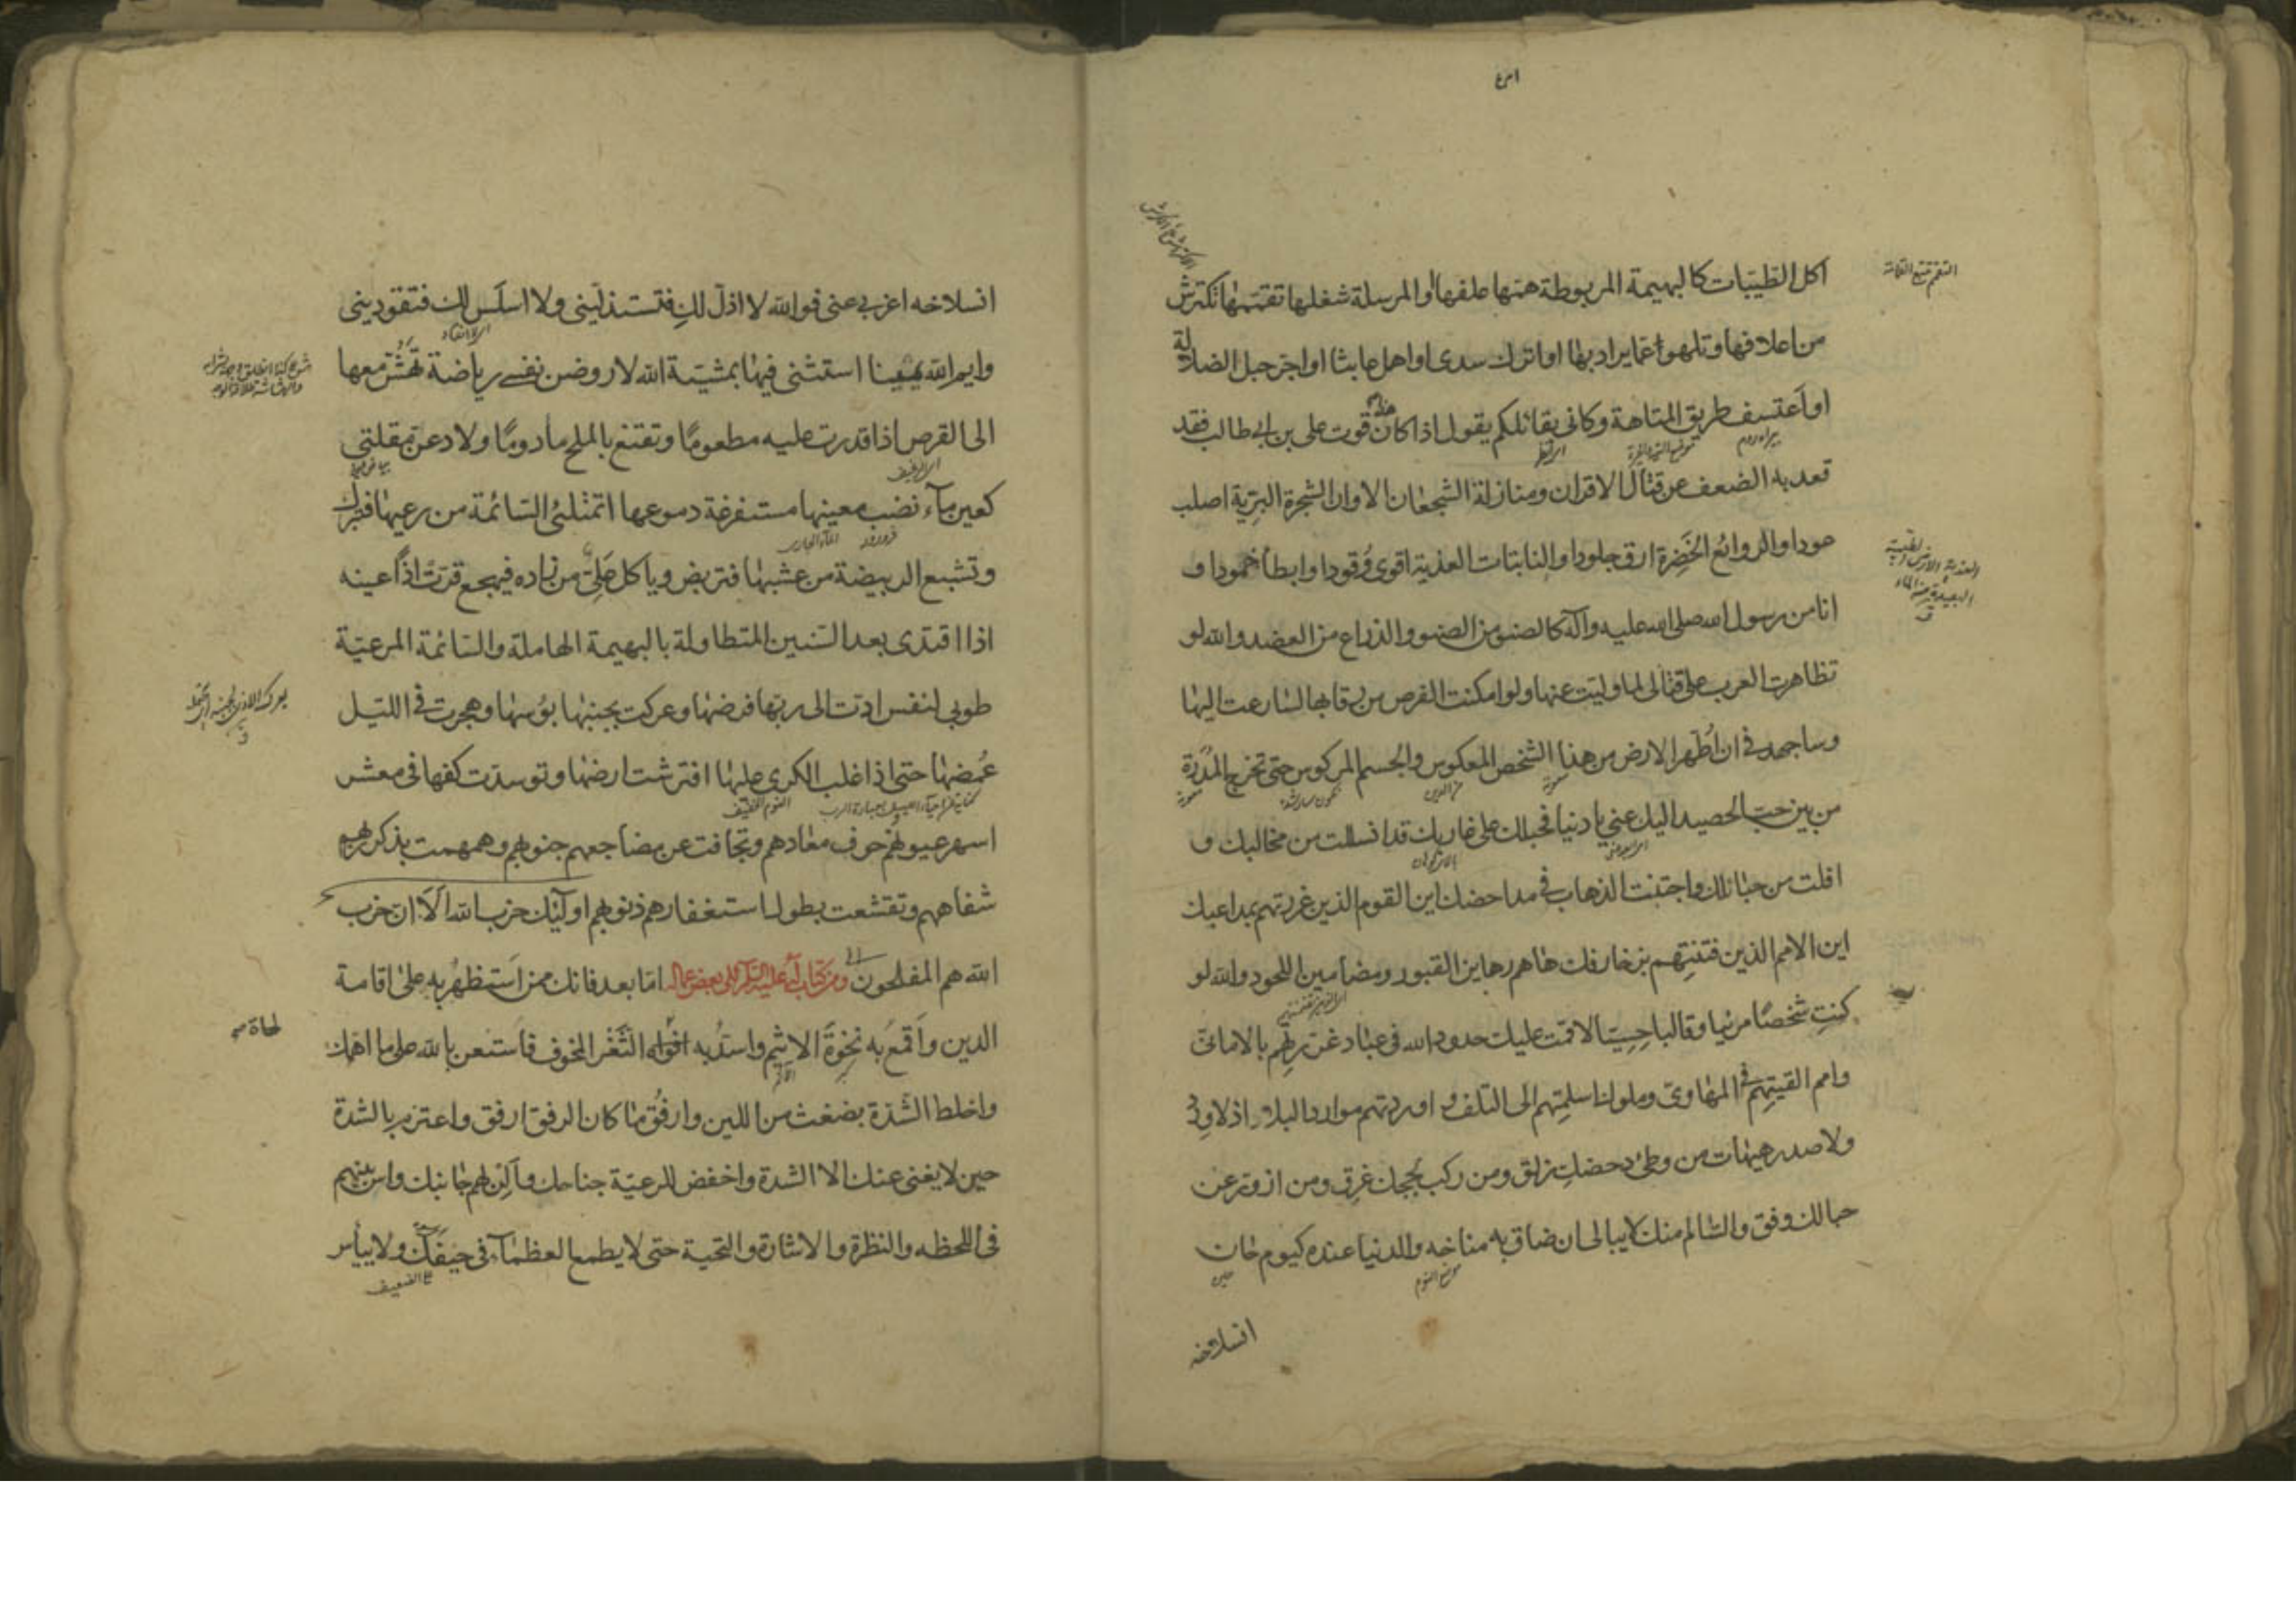 اكل الطيبات كالبهيمة المربوطة همها علفها او المرسلة شغلها تقممها تكترش
من اعلافها وتلهو عما يراد بها او اترك سدى او اهمل عابثا او اجر حبل الضلالة
او اعتسف طريق المتاهة وكاني بقائلكم يقول اذا كان هذا قوت على بن ابي طالب فقد
قعد به الضعف عن قتال الاقران ومنازلة الشجعان الا وان الشجرة البرية اصلب
عودا والروائع الخَضِرة ارق جلودا والنابتات العذية اقوى وُقودا وابطأ خمودا و
انا من رسول الله صلى الله عليه وآله كالصنو من الصنو والذراع من العضد والله لو
تظاهرت العرب على قتالى لما وليت عنها ولو امكنت الفرص من رقابها لسارعت اليها
وساجهد فى ان اُطهر الارض من هذا الشخص المعكوس والجسم المركوس حتى تخرج المَدَرة
من بين حب الحصيد اليك عني يا دنيا فحبلك على غاربك قد انسللت من مخالبك و
افلت من حبائلك واجتنبت الذهاب في مداحضك اين القوم الذين غررتهم بمداعبك
اين الامم الذين فتنتِهم بزخارفك ها هم رهاين القبور ومضامين اللحود والله لو
كنتِ شخصًا مرئيا وقالبا حِسيّا لاقمت عليك حدود الله فى عباد غررتِهم بالامانى
وامم القيتِهم فى المهاوى وملوك اسلمتِهم الى التلف و اوردتهم موارد البلاء اذ لا وِرد
ولا صدر هيهات من وطئ دحضكِ زلق ومن ركب لججك غرِق ومن ازورّ عن
حبالك وفق والسالم منك لا يبالى ان ضاق به مناخه والدنيا عنده كيوم حان
موضع النوم
حين
انسلاخه
انسلاخه اعزبى عنى فوالله لا اذلّ لكِ فتستذلينى ولا اسلَس لك فتقودينى
وايم الله يمينا استثنى فيها بمشيّة الله لاروضن نفسى رياضة تهشّ معها
الى القرص اذا قدرت عليه مطعومًا وتقنع بالملح مأدومًا ولادعن مقلتى
كعين ماء نضب معينها مستفرغة دموعها اتمتلئ السائمة من رعيها فتبرك
وتشبع الربيضة من عشبها فتربض وياكل عَلِىّ من زاده فيهجع قرّت اذًا عينه
اذا اقتدى بعد السنين المتطاولة بالبهيمة الهاملة والسائمة المرعيّة
طوبى لنفس ادّت الى ربها فرضها وعركت بجنبها بؤسها وهجرت فى الليل
غُمضها حتى اذا غلب الكرى عليها افترشت ارضها وتوسدت كفها فى معشر
النوم الخفيف
اسهر عيونهم خوف معادهم وتجافت عن مضاجعهم جنوبهم وهمهمت بذكر ربهم
شفاههم وتقشعت بطول استغفارهم ذنوبهم اولئك حزب الله اَلَا ان حزب
الله هم المفلحون ومن كتاب له عليه السلام الى بعض عماله اما بعد فانك ممن اَستظهرُ به على اقامة
الدين واَقمعُ به نخوةَ الاثيم واسدّ به لهاة الثَغر المخوف فاستعن بالله على ما اهمك
لهاة
واخلط الشدّة بضغث من اللين وارفُق ما كان الرفق ارفق واعتزم بالشدة
حين لا يغنى عنك الا الشدة واخفض للرعيّة جناحك واَلِن لهم جانبك واس بينهم
فى اللحظه والنظرة والاشارة والتحية حتى لا يطمع العظمآء فى حيفك ولا ييأس